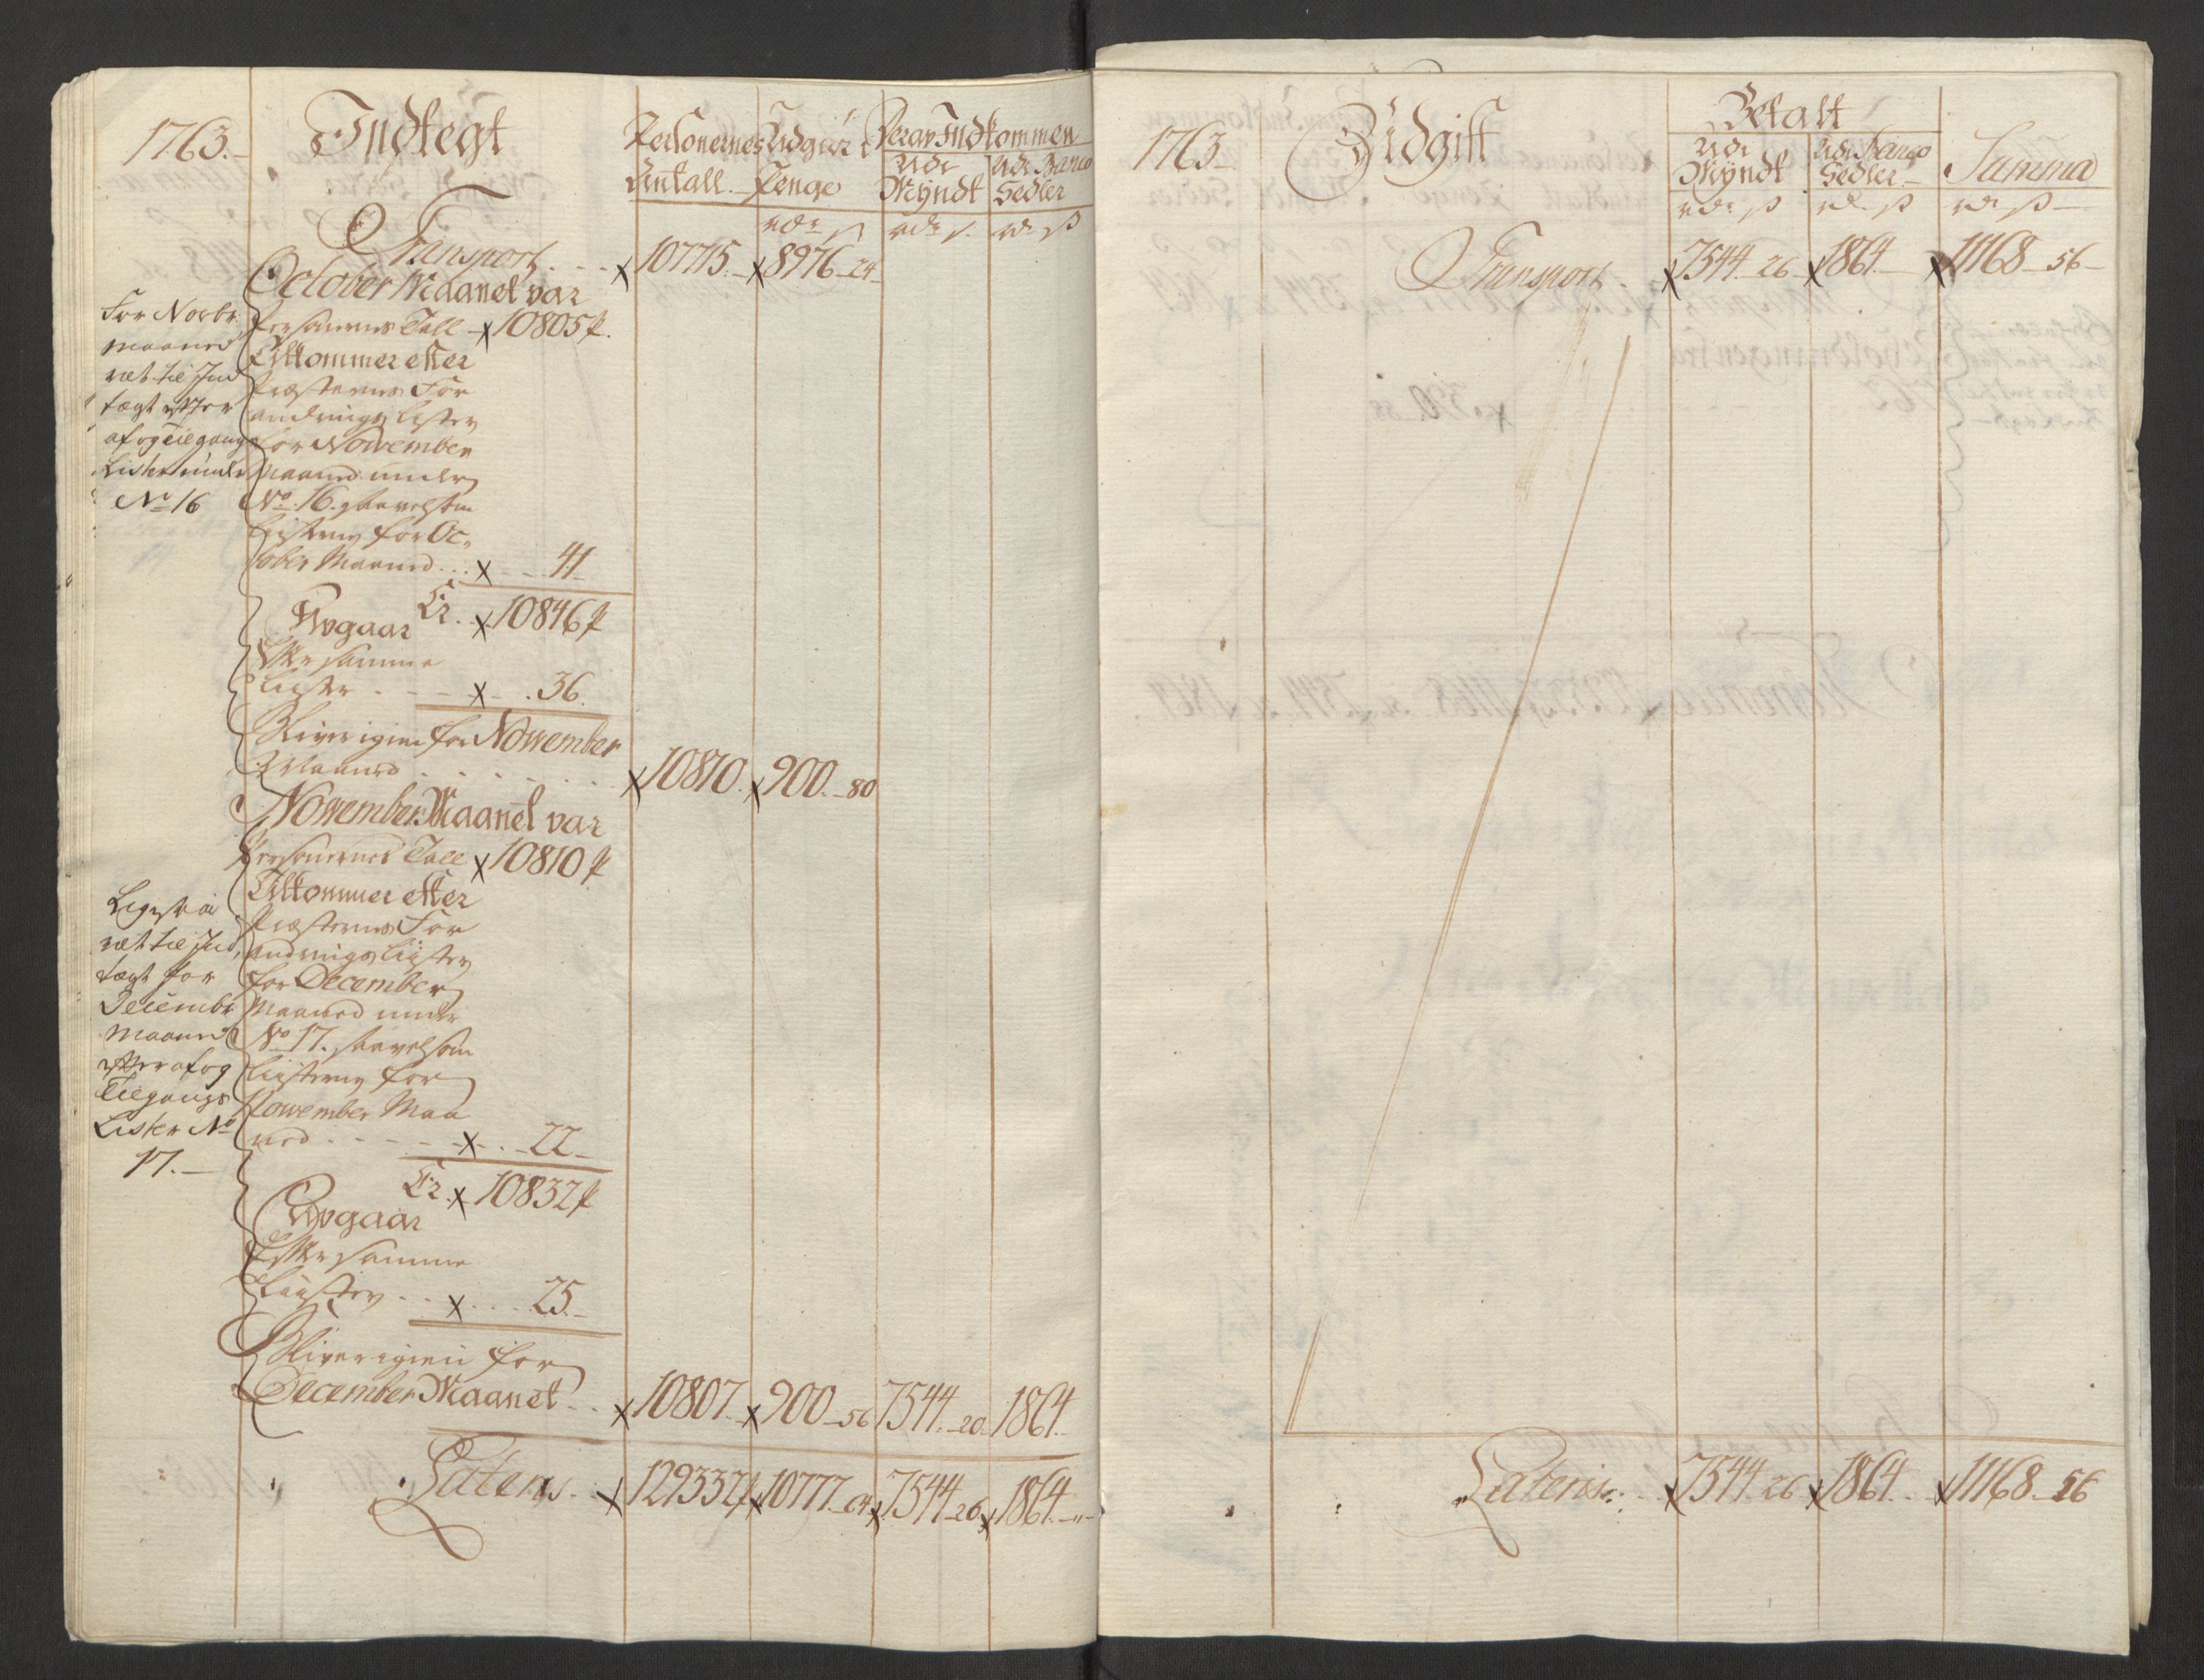 1763.
Indtegt
Personernes
Antall.
Udgiør i
Penge
Derav Indkommen
Udi
Myndt
Udi Banco
Sedler
rdr ß
rdr ß
rdr ß
Transport . . . 107715. 8976 24
October Maanet var
Personernes Tall 10805 p.
Tilkommer efter
Præsternes For
andrings Lister
for November
Maaned under
No. 16. saavelsom
Listerne for Oc,
tober Maaned . . . 41
Er . . 10846 p
Avgaar
Efter samme
Lister . . . . 36.
Bliver igien for November
Maaned . . . . . . 10810. 900. 80
November Maanet var
Personernes Tall 10810 p
Tilkommer efter
Præsternes For
andrings Lister
for December
Maaned under
No 17. saavelsom
Listerne for
November Maa
ned . . . . . 22
Er . 10832 p
Avgaar
Efter samme
Lister . . . . 25.
Bliver igien for
December Maanet . . 10807. 900 56 7544. 20. 1864.
Lateris . . 129332 p 10777. 64 7544 26 1864. „
For Novbr.
Maaned
ret til Ind
tægt efter
af og Tilgangs
Lister under
No 16
Ligesaa
ret til Ind,
tægt for
Decembr
Maaned
efter af og
Tilgangs
Lister No
17.
1763
Udgift
Betalt
Udi
Myndt
Udi Banco
Sedler
Summa
rdr ß
rdr ß
rdr ß
Transport . 7544 26 1864. 11168 56
Lateris . . 7544 26 1864. . 11168 56